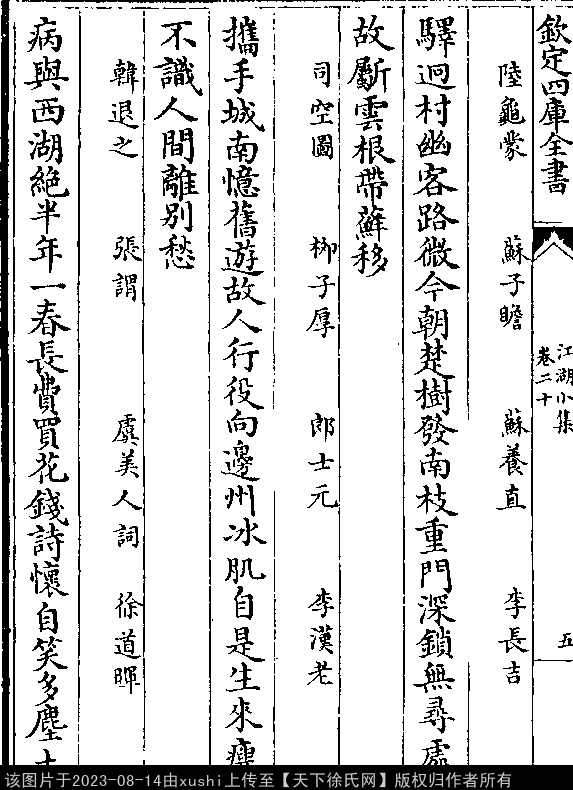 欽定四庫全書
江湖小集
卷二十
五
陸龜蒙 蘇子瞻 蘇養直 李長吉
驛迥村幽客路微今朝楚樹發南枝重門深鎖無尋處
司空圖 栁子厚 郎士元 李漢老
故斸雲根帶蘚移
攜手城南憶舊遊故人行役向邊州冰肌自是生來瘦
不識人間離別愁
韓退之 張謂 虞美人詞 徐道暉
病與西湖絶半年一春長費買花錢詩懷自笑多塵土
该图片于2023-08-14由xushi上传至【天下徐氏网】版权归作者所有